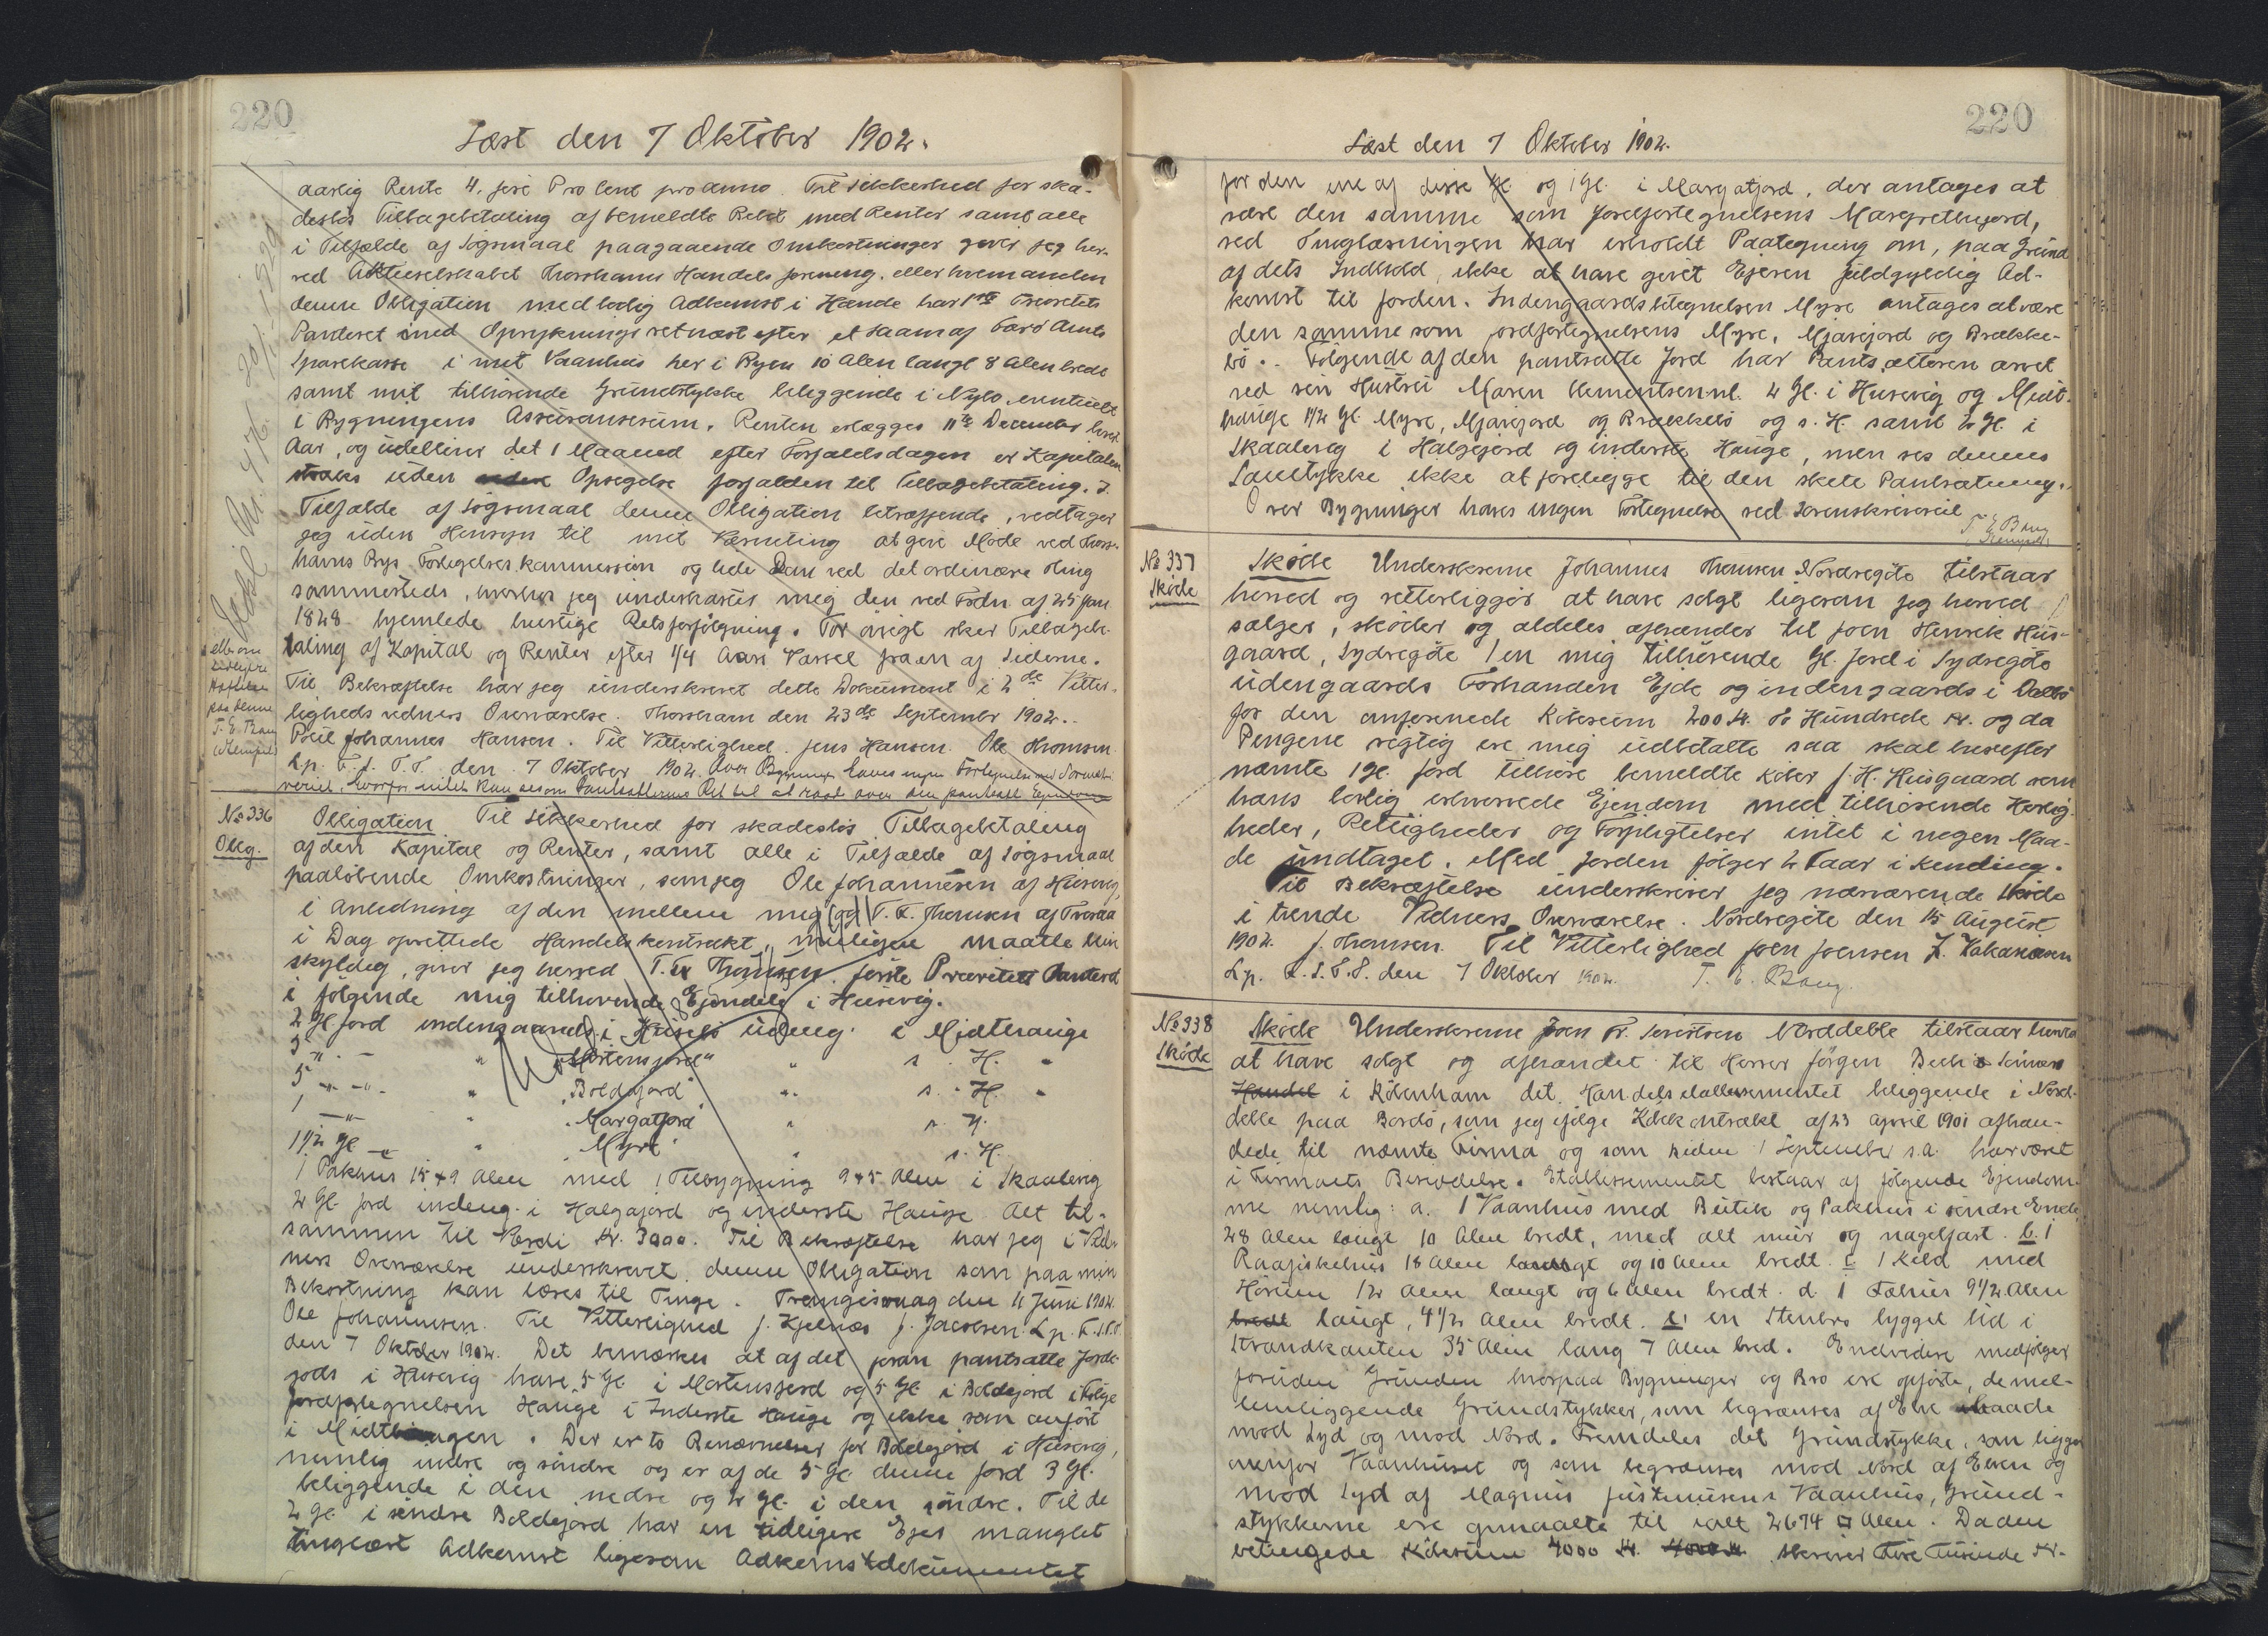 220
Læst den 7 Oktober 1902.
aarlig Rente 4, fire Pro Cent pro anno. Til Sikkerhed for ska-
desløs Tilbagebetaling af bemeldte Rekt med Renter samt alle
i Tilfælde af Søgsmaal paagaaende Omkostninger giver jeg her-
ved Aktieselskabet Thorshavns Handelsforening, eller hvem anden
denne Obligation med lovlig Adkomst i Hænde har 1ste Prioritets
Panteret med Oprykningsret næst efter et Laan af Færø Amts
Sparekasse i mit Vaanhus her i Byen 10 Alen langt 8 Alen bredt
samt mit tilhørende Grundstykke beliggende i Nylo eventuelt
i Bygningens Assuransesum. Renten erlægges 11te December hvert
Aar, og udebliver det 1 Maaned efter Forfaldsdagen er Kapitalen
straks uden Opsigelse forfalden til Tilbagebetaling. I
Tilfælde af Søgsmaal denne Obligation betræffende, vedtager
jeg uden Hensyn til mit Værneting at give Møde ved Thors-
havns Bys Forligelseskommission og lide Dom ved det ordinære Thing
sammesteds, hvorhos jeg underkaster mig den ved Frdn. af 25 Jan
1828 hjemlede hurtige Retsforfølgning. For øvrigt sker Tilbagebe-
taling af Kapital og Renter efter 1/4 Aars Varsel fra en af Siderne.
Til Bekræftelse har jeg underskrevet dette Dokument i 2de Vitter-
ligheds vidners Overværelse. Thorshavn den 23de September 1902.
Poul Johannes Hansen. Til Vitterlighed. Jens Hansen. Ole Thomsen
Lp. F. S. T. T. den 7 Oktober 1902. Over Bygninger haves ingen Fortegnelse ved Sorenskri-
veriet, hvorfor intet kan sees om Pantsætterens Ret til at raade over den pantsatte Ejendom
No 336
Oblg.
Obligation Til Sikkerhed for skadesløs Tilbagebetaling
af den Kapital og Renter, samt alle i Tilfælde af Søgsmaal
paaløbende Omkostninger, som jeg Ole Johannesen af Husevig,
i Anledning af den mellem mig og T. F. Thomsen af Tveraa
i Dag oprettede Handelskontrakt, muligen maatte blive
skyldig, giver jeg herved T. F. Thomsen første Prioritets Panteret
i følgende mig tilhørende Ejendele i Husevig.
2 Gl Jord indengaards i Husebø udeng. i Midthauge
3 " - " "Mortensjord" " s. H. "
5 " - " "Boldejord" " s. H. "
1 - " - " "Margatjord" " s. H.
1 1/2 Gl - " "Myre" " s. H.
1 Pakhus 15 + 9 Alen med 1 Tilbygning 9 + 5 Alen i Skaalevig
2 Gl. Jord indeng. i Halgajord og inderste Hauge. Alt til-
sammen til Værdi Kr. 3000. Til Bekræftelse har jeg i Vid-
ners Overværelse underskrevet denne Obligation som paa min
Bekostning kan læses til Tinge. Trangisvaag den 4 Juni 1902.
Ole Johannesen. Til Vitterlighed J. Kjelnæs J. Jacobsen. Lp. F. S. T. T.
den 7 Oktober 1902. Det bemærkes at af det foran pantsatte Jorde-
gods i Husevig have 5 Gl. i Mortensjord og 5 Gl. i Boldejord ifølge
Jordfortegnelsen Hauge i Inderste Hauge og ikke som anført
i Midthaugen. Der er to Benævnelser for Boldejord i Husevig,
nemlig nedre og søndre og er af de 5 Gl. denne Jord 3 Gl.
beliggende i den nedre og 2 Gl. i den søndre. Til de
2 Gl. i søndre Boldejord har en tidligere Ejer manglet
tinglæst Adkomst ligesom Adkomstdokumentet
220
Læst den 7 Oktober 1902.
for den ene af disse Gl. og 1 Gl. i Margatjord, der antages at
være den samme som Jordfortegnelsens Margrethejord,
ved Tinglæsningen har erholdt Paategning om, paa Grund
af dets Indhold, ikke at have givet Ejeren fuldgyldig Ad-
komst til Jorden. Indengaardsbetegnelsen Myre antages at være
den samme som Jordfortegnelsens Myre, Mjavejord og Brække-
bø. Følgende af den pantsatte Jord har Pantsætteren arvet
ved sin Hustru Maren Clementsen nl. 2 Gl. i Husevig og Midt-
hauge 1 1/2 Gl. Myre, Mjavejord og Brækkebø og s. H. samt 2 Gl. i
Skaalevig i Halgejord og inderste Hauge, men ses dennes
Samtykke ikke at foreligge til den skete Pantsætning.
Over Bygninger haves ingen Fortegnelse ved Sorenskriveriet
T. E. Bang
No 337
Skøde
Skøde Underskrevne Johannes Thomsen Nordregøte tilstaar
herved og vitterliggør at have solgt ligesom jeg herved
sælger, skøder og aldeles afhænder til Joen Henrik Hus-
gaard, Sydregøte 1 en mig tilhørende Gl. Jord i Sydregøte
udengaards Forhanden Ejde og indengaards i Dalbø
for den omforenede Købesum 200 Kr. To Hundrede Kr. og da
Pengene rigtig ere mig udbetalte saa skal herefter
nævnte 1 Gl. Jord tilhøre bemeldte Køber J. H. Husgaard som
hans lovlig erhvervede Ejendom med tilhørende Herlig-
heder, Rettigheder og Forpligtelser intet i nogen Maa-
de undtaget. Med Jorden følger 2 Faar i Kending.
Til Bekræftelse underskriver jeg nærværende Skøde
i tvende Vidners Overværelse. Nordregøte den 15 August
1902. J. Thomsen. Til Vitterlighed Joen Joensen Z. Zakariasen
Lp. F. S. T. T. den 7 Oktober 1902. T. E. Bang.
No 338
Skøde
Skøde Underskrevne Joen Fr. Sivertsen Norddeble tilstaar herved
at have solgt og afhændet til Herrer Jørgen Bech & Sønners
Handel i København det Handelsetablissementet beliggende i Nord-
deble paa Bordø, som jeg ifølge Købekontrakt af 23 April 1901 afhæn-
dede til nævnte Firma og som siden 1 September s.a. har været
i Firmaets Besiddelse. Etablissementet bestaar af følgende Ejendom-
me nemlig: a. 1 Vaanhus med Butik og Pakhus i søndre Ende
28 Alen langt 10 Alen bredt, med alt mur og nagelfast. b. 1
Raafiskehus 18 Alen langt og 10 Alen bredt. c 1 Keld med
Hørum 12 Alen langt og 6 Alen bredt. d. 1 Fæhus 9 1/2 Alen
bredt langt, 4 1/2 Alen bredt. e. en Stenbro bygget ud i
Strandkanten 35 Alen lang 7 Alen bred. Endvidere medfølger
foruden Grunden hvorpaa Bygninger og Bro ere opførte, de mel-
lemliggende Grundstykker, som begrænses af Elve baade
mod Syd og mod Nord. Fremdeles det Grundstykke, som ligger
ovenfor Vaanhuset og som begrænses mod Nord af Elven og
mod Syd af Magnus Justinusens Vaanhus, Grund-
stykkerne ere opmaalte til ialt 2674 □ Alen. Da den
betingede Købesum 4000 Kr. skriver Fire Tusinde Kr.